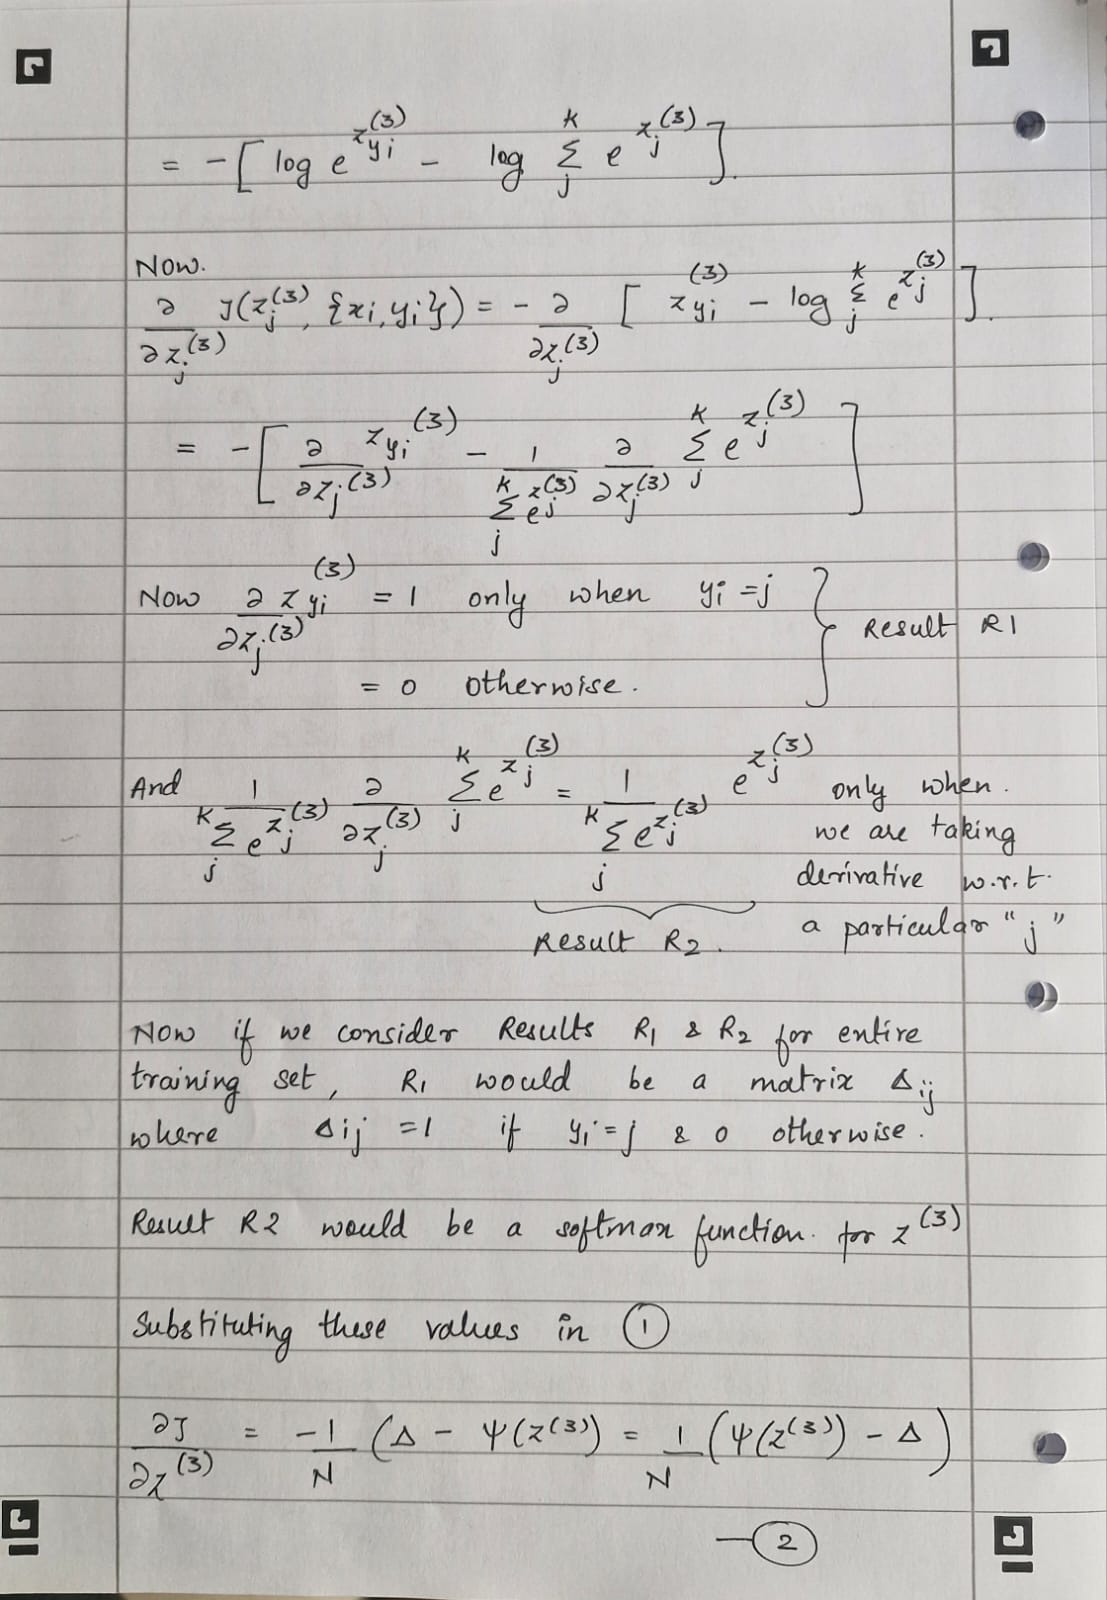 = - [ log e^{z_{y_i}^{(3)}} - log Σ_j^K e^{z_j^{(3)}} ].
Now.
∂/∂z_j^{(3)} J(z_j^{(3)}, {x_i, y_i}) = - ∂/∂z_j^{(3)} [ z_{y_i}^{(3)} - log Σ_j^K e^{z_j^{(3)}} ].
= - [ ∂/∂z_j^{(3)} z_{y_i}^{(3)} - 1/(Σ_j^K e^{z_j^{(3)}}) ∂/∂z_j^{(3)} Σ_j^K e^{z_j^{(3)}} ]
Now ∂z_{y_i}^{(3)}/∂z_j^{(3)} = 1 only when y_i = j } Result R1
= 0 otherwise.
And 1/(Σ_j^K e^{z_j^{(3)}}) ∂/∂z_j^{(3)} Σ_j^K e^{z_j^{(3)}} = 1/(Σ_j^K e^{z_j^{(3)}}) e^{z_j^{(3)}} only when.
we are taking
derivative w.r.t.
a particular "j"
Result R2.
Now if we consider Results R1 & R2 for entire
training set, R1 would be a matrix Δ_{ij}
where Δ_{ij} = 1 if y_i = j & 0 otherwise.
Result R2 would be a softmax function. for z^{(3)}
Substituting these values in ①
∂J/∂z^{(3)} = -1/N (Δ - ψ(z^{(3)}) = 1/N (ψ(z^{(3)}) - Δ)
— ②